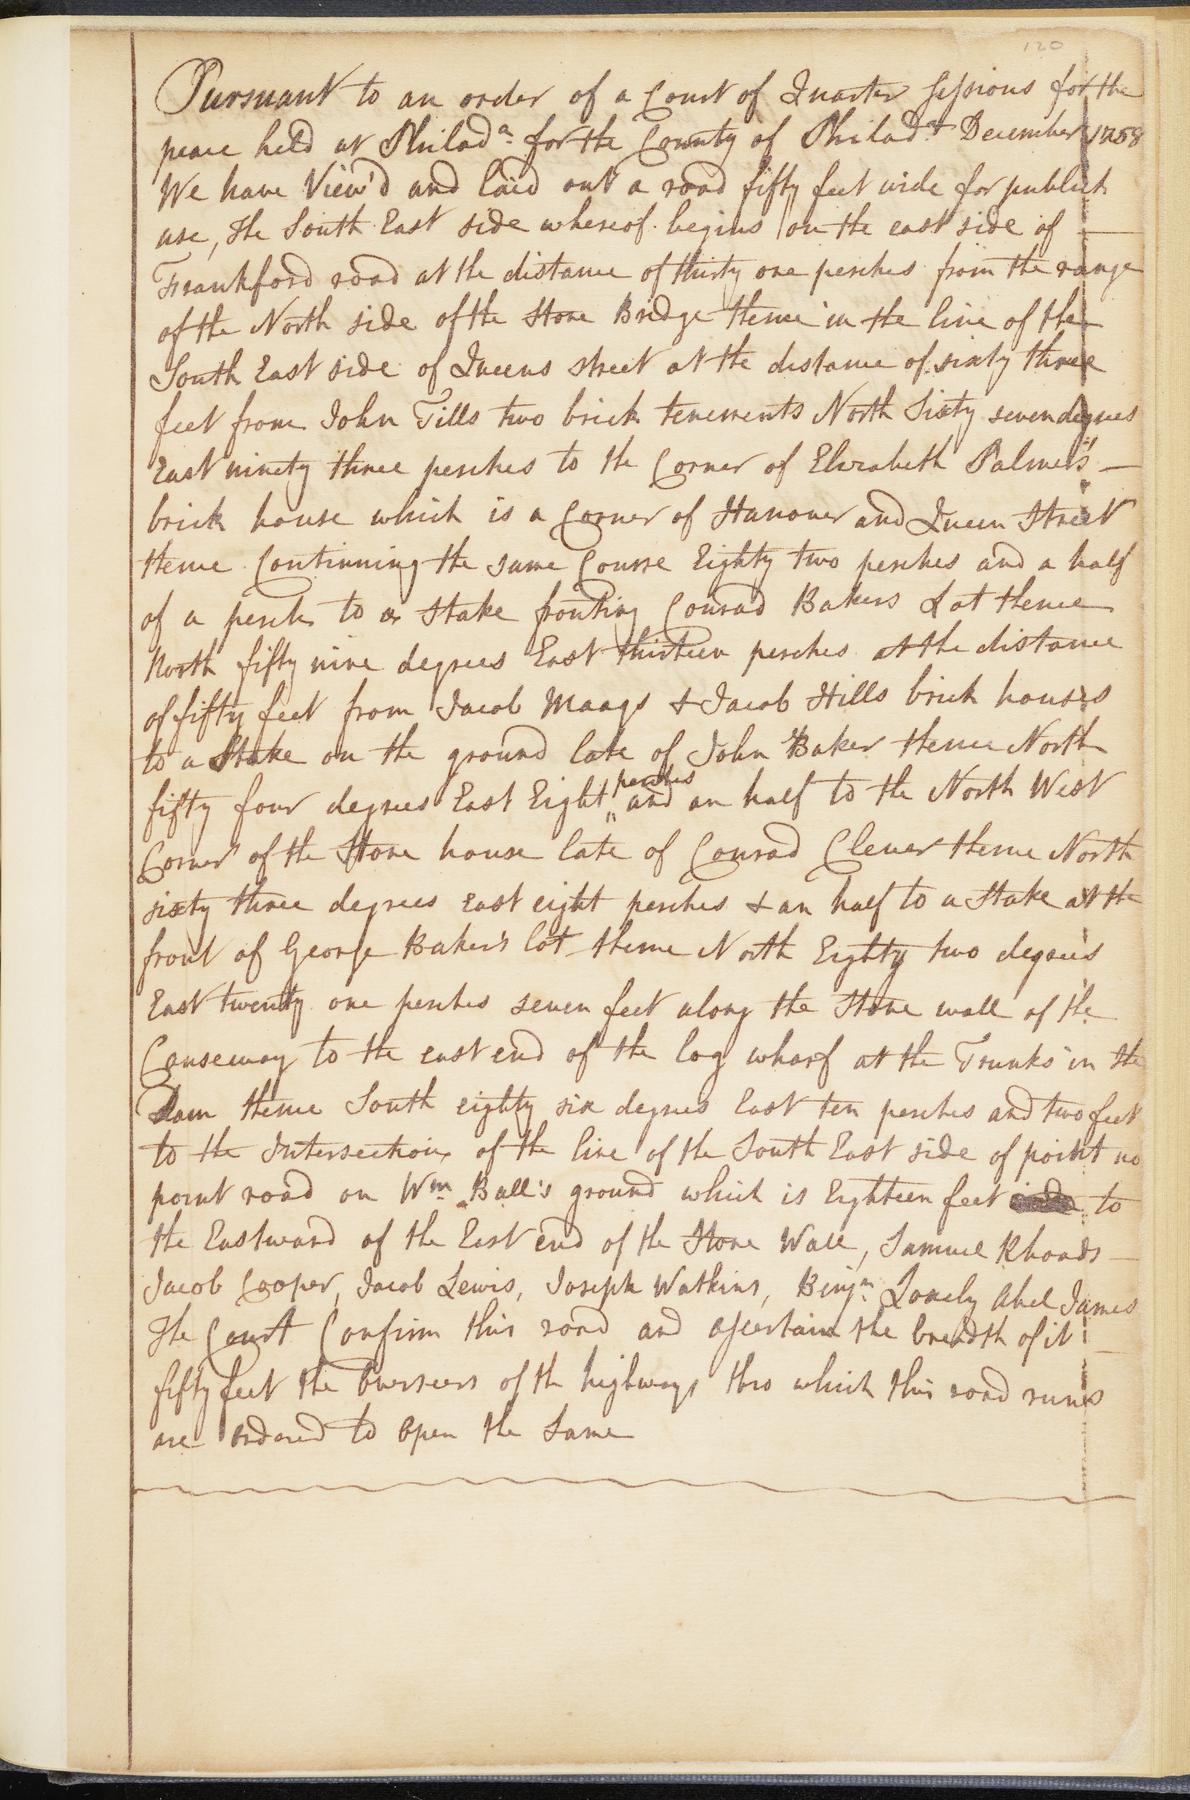 120
Pursuant to an order of a Court of Quarter Sessions for the
peace held at Philada for the County of Philada December 1758
We have View'd and laid out a road fifty feet wide for publick
use, The South East side whereof begins on the east side of
Frankford road at the distance of thirty one perches from the range
of the North side of the Stone Bridge thence in the line of the
South East side of Queens street at the distance of sixty three
feet from John Tills two brick tenements North Sixty seven degrees
East ninety three perches to the Corner of Elizabeth Palmer's
brick house which is a Corner of Hanover and Queen Street
thence Continuing the same Course Eighty two perches and a half
of a perch to a Stake fronting Conrad Bakers Lot thence
North fifty nine degrees East thirteen perches at the distance
of fifty feet from Jacob Maags & Jacob Hills brick houses
to a Stake on the ground late of John Baker thence North
fifty four degrees East Eight perches and an half to the North West
Corner of the Stone house late of Conrad Clever thence North
sixty three degrees East eight perches & an half to a Stake at the
front of George Baker's lot thence North Eighty two degrees
East twenty one perches seven feet along the Stone wall of the
Causeway to the east end of the log wharf at the Trunks in the
Dam thence South eighty six degrees East ten perches and two feet
to the Intersection of the line of the South East side of point no
point road on Wm Ball's ground which is Eighteen feet to
the Eastward of the East end of the Stone Wall, Samuel Rhoads
Jacob Cooper, Jacob Lewis, Joseph Watkins, Benjn Loxely Abel James
The Court Confirm this road and ascertain the breadth of it
fifty feet the Overseers of th highways thro which this road runs
are ordered to Open the Same